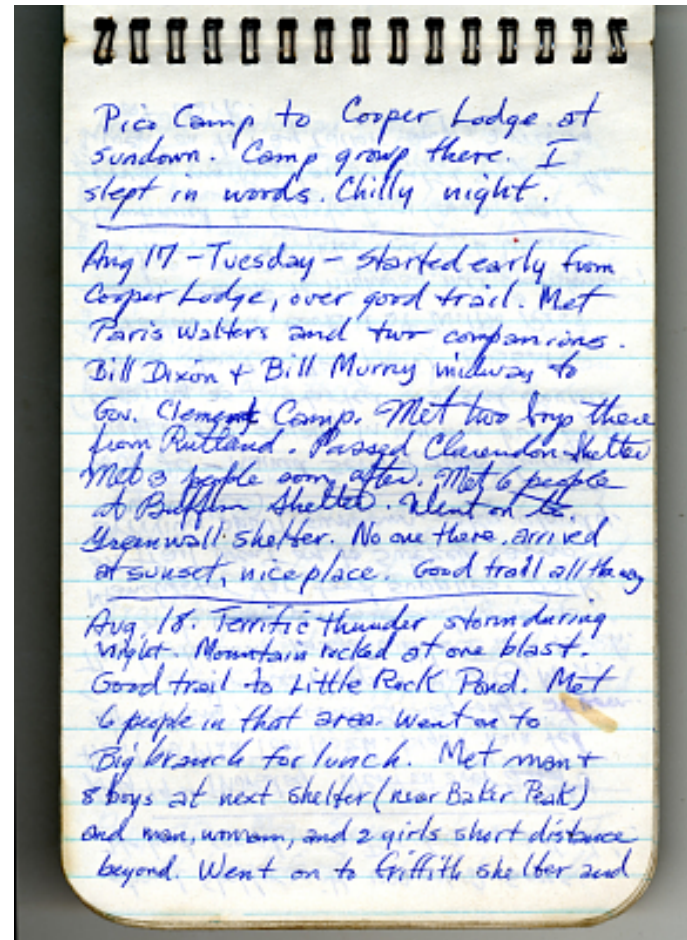 Pico Camp to Cooper Lodge at
sundown. Camp group there. I
slept in words. Chilly night.
Aug 17 - Tuesday - started early from
Cooper Lodge, over good trail. Met
Paris Walters and two companions.
Bill Dixon + Bill Murry midway to
Gov. Clement Camp. Met two boys there
from Rutland. Passed Clarendon Shelter
Met 3 people soon after. Met 6 people
at Buffum Shelter. Went on to
Greenwall shelter. No one there. arrived
at sunset, nice place. Good trail all the way
Aug 18. Terrific thunder storm during
night. Mountain rocked at one blast.
Good trail to Little Rock Pond. Met
6 people in that area. Went on to
Big branch for lunch. Met man +
8 boys at next shelter (near Baker Peak)
and man, woman, and 2 girls short distance
beyond. Went on to Griffith shelter and